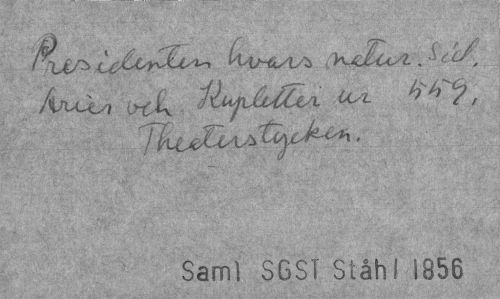 Presidenten hvars natur. Sid.
Arier och Kupletter ur 559.
Theaterstycken.
Saml SGST Ståhl 1856